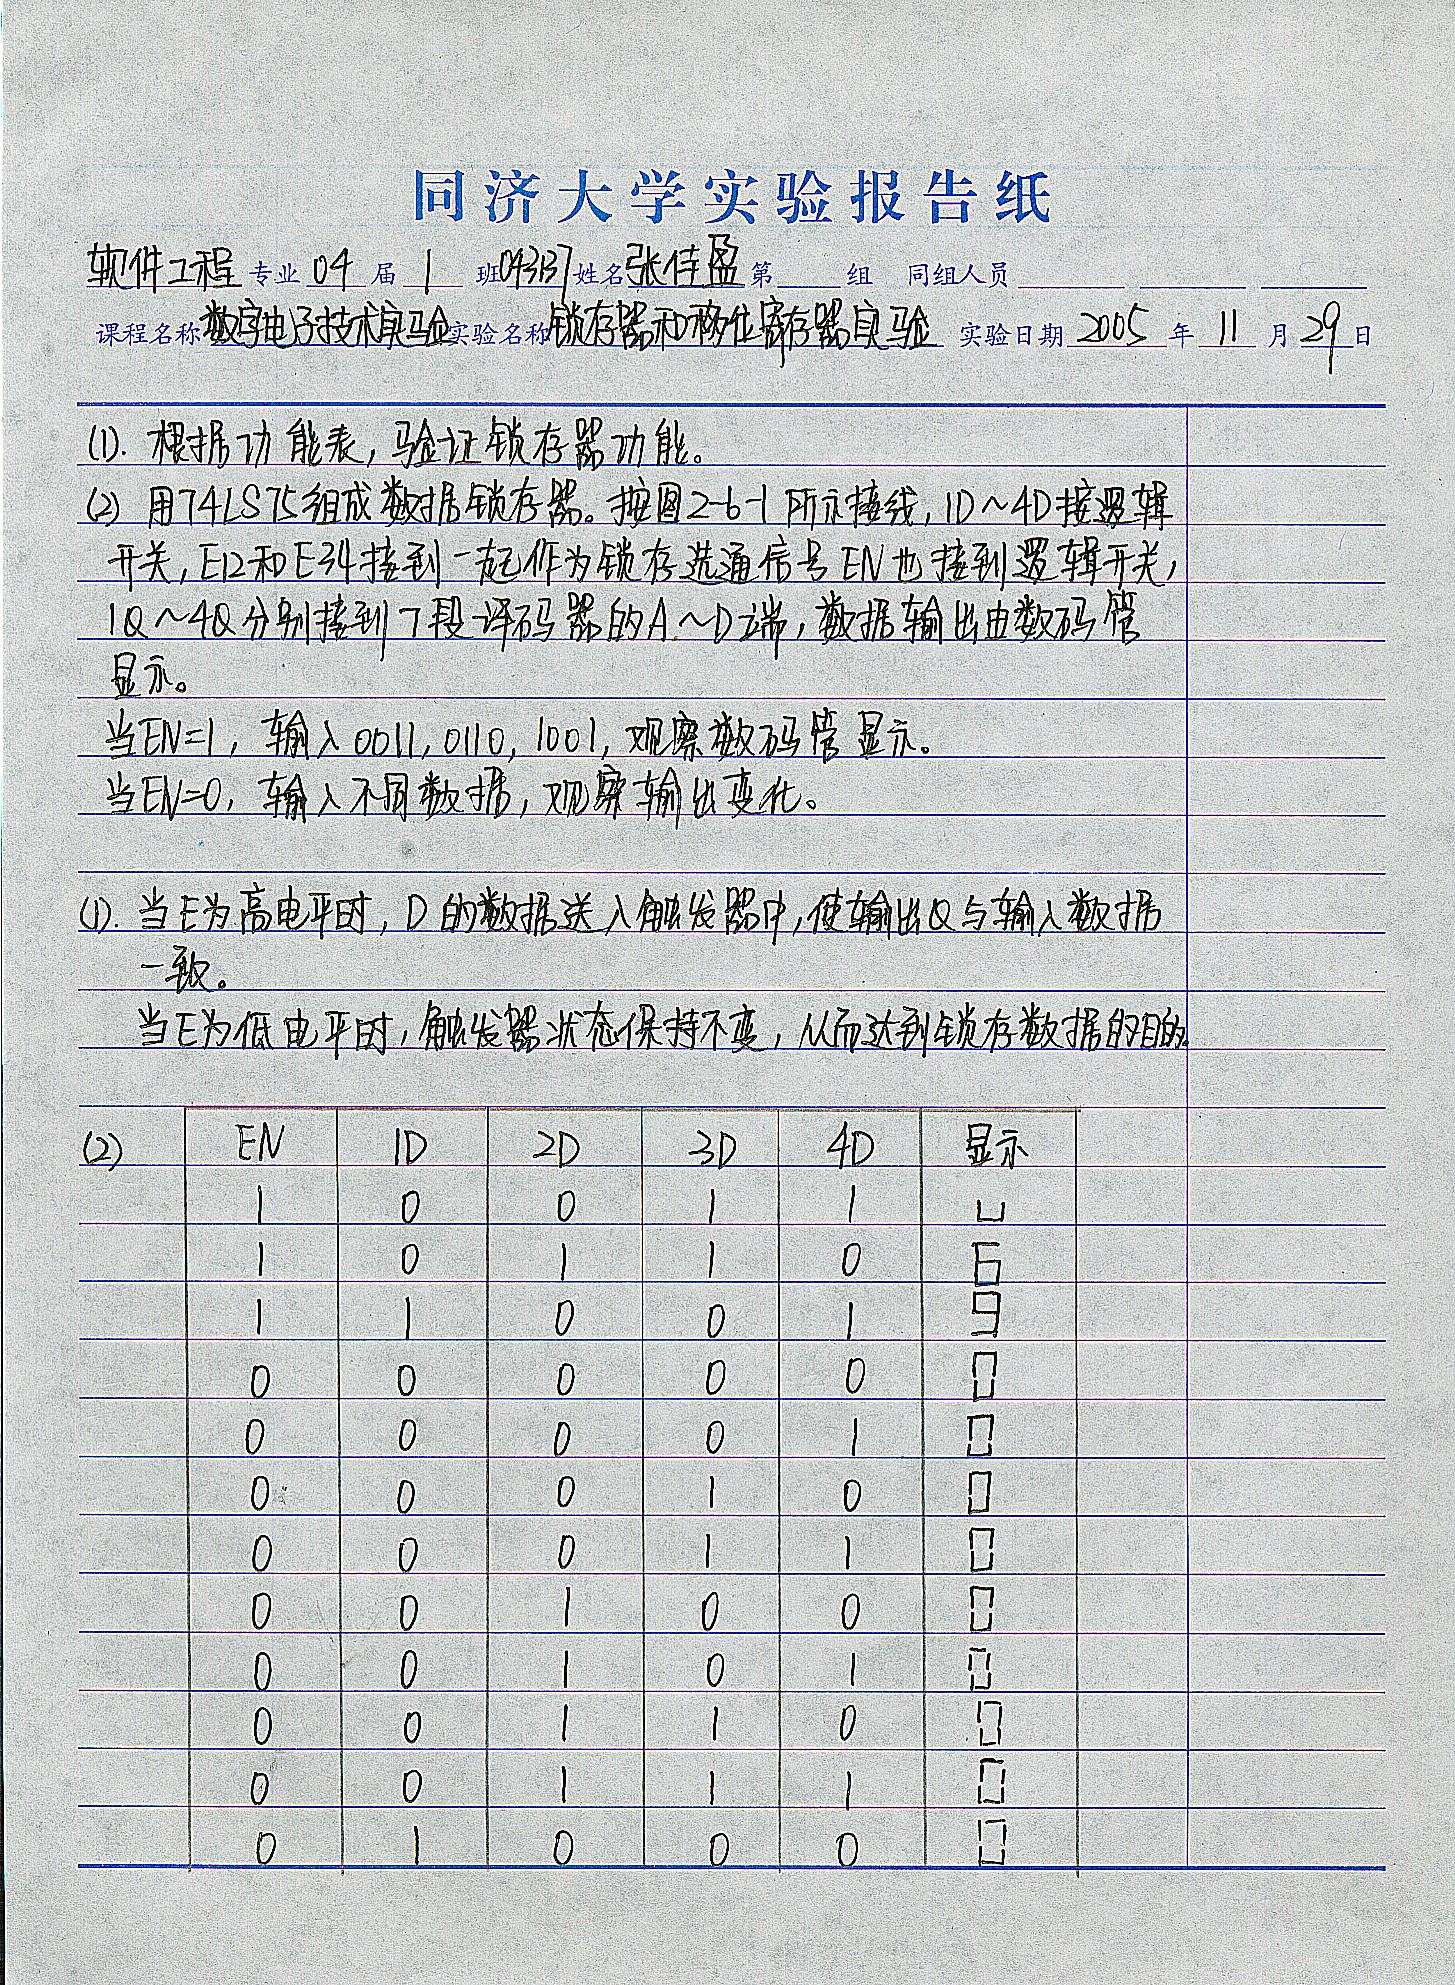 同济大学实验报告纸
软件工程 专业 04 届 1 班 043137 姓名 张佳盈 第 组 同组人员
课程名称 数字电子技术实验 实验名称 锁存器和移位寄存器实验 实验日期 2005 年 11 月 29 日
(1). 根据功能表,验证锁存器功能。
(2) 用74LS75组成数据锁存器。按图2-6-1所示接线,1D~4D接逻辑
开关,E12和E34接到一起作为锁存选通信号EN也接到逻辑开关,
1Q~4Q分别接到7段译码器的A~D端,数据输出由数码管
显示。
当EN=1,输入0011,0110,1001,观察数码管显示。
当EN=0,输入不同数据,观察输出变化。
(1). 当E为高电平时,D的数据送入触发器中,使输出Q与输入数据
一致。
当E为低电平时,触发器状态保持不变,从而达到锁存数据的目的。
(2) EN 1D 2D 3D 4D 显示
1 0 0 1 1
1 0 1 1 0 6
1 1 0 0 1 9
0 0 0 0 0 0
0 0 0 0 1 0
0 0 0 1 0 0
0 0 0 1 1 0
0 0 1 0 0 0
0 0 1 0 1 0
0 0 1 1 0 0
0 0 1 1 1 0
0 1 0 0 0 0